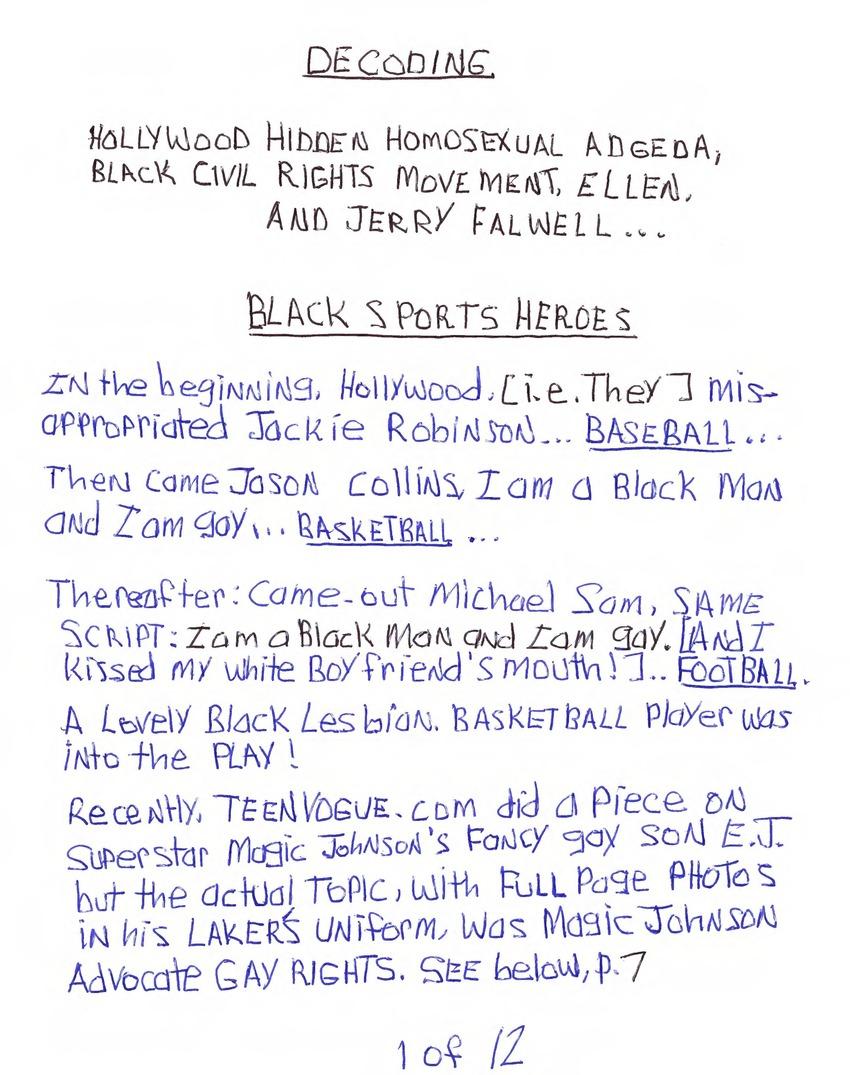 DECODING.
HOLLYWOOD HIDDEN HOMOSEXUAL ADGEDA,
BLACK CIVIL RIGHTS MOVEMENT, ELLEN,
AND JERRY FALWELL...
BLACK SPORTS HEROES
IN the beginning, Hollywood, [i.e. They] mis-
appropriated Jackie Robinson... BASEBALL...
Then came Jason Collins, I am a Black Man
and I am gay... BASKETBALL ...
Thereafter: Came-out Michael Sam, SAME
SCRIPT: I am a Black Man and I am gay. [And I
kissed my white Boyfriend's mouth!].. FOOTBALL.
A Lovely Black Lesbian. BASKETBALL Player was
into the PLAY!
Recently, TEENVOGUE.com did a piece on
Superstar Magic Johnson's Fancy gay son E.J.
but the actual TOPIC, with FULL Page PHOTOS
in his LAKER'S Uniform, was Magic Johnson
Advocate GAY RIGHTS. SEE below, p.7
1 of 12